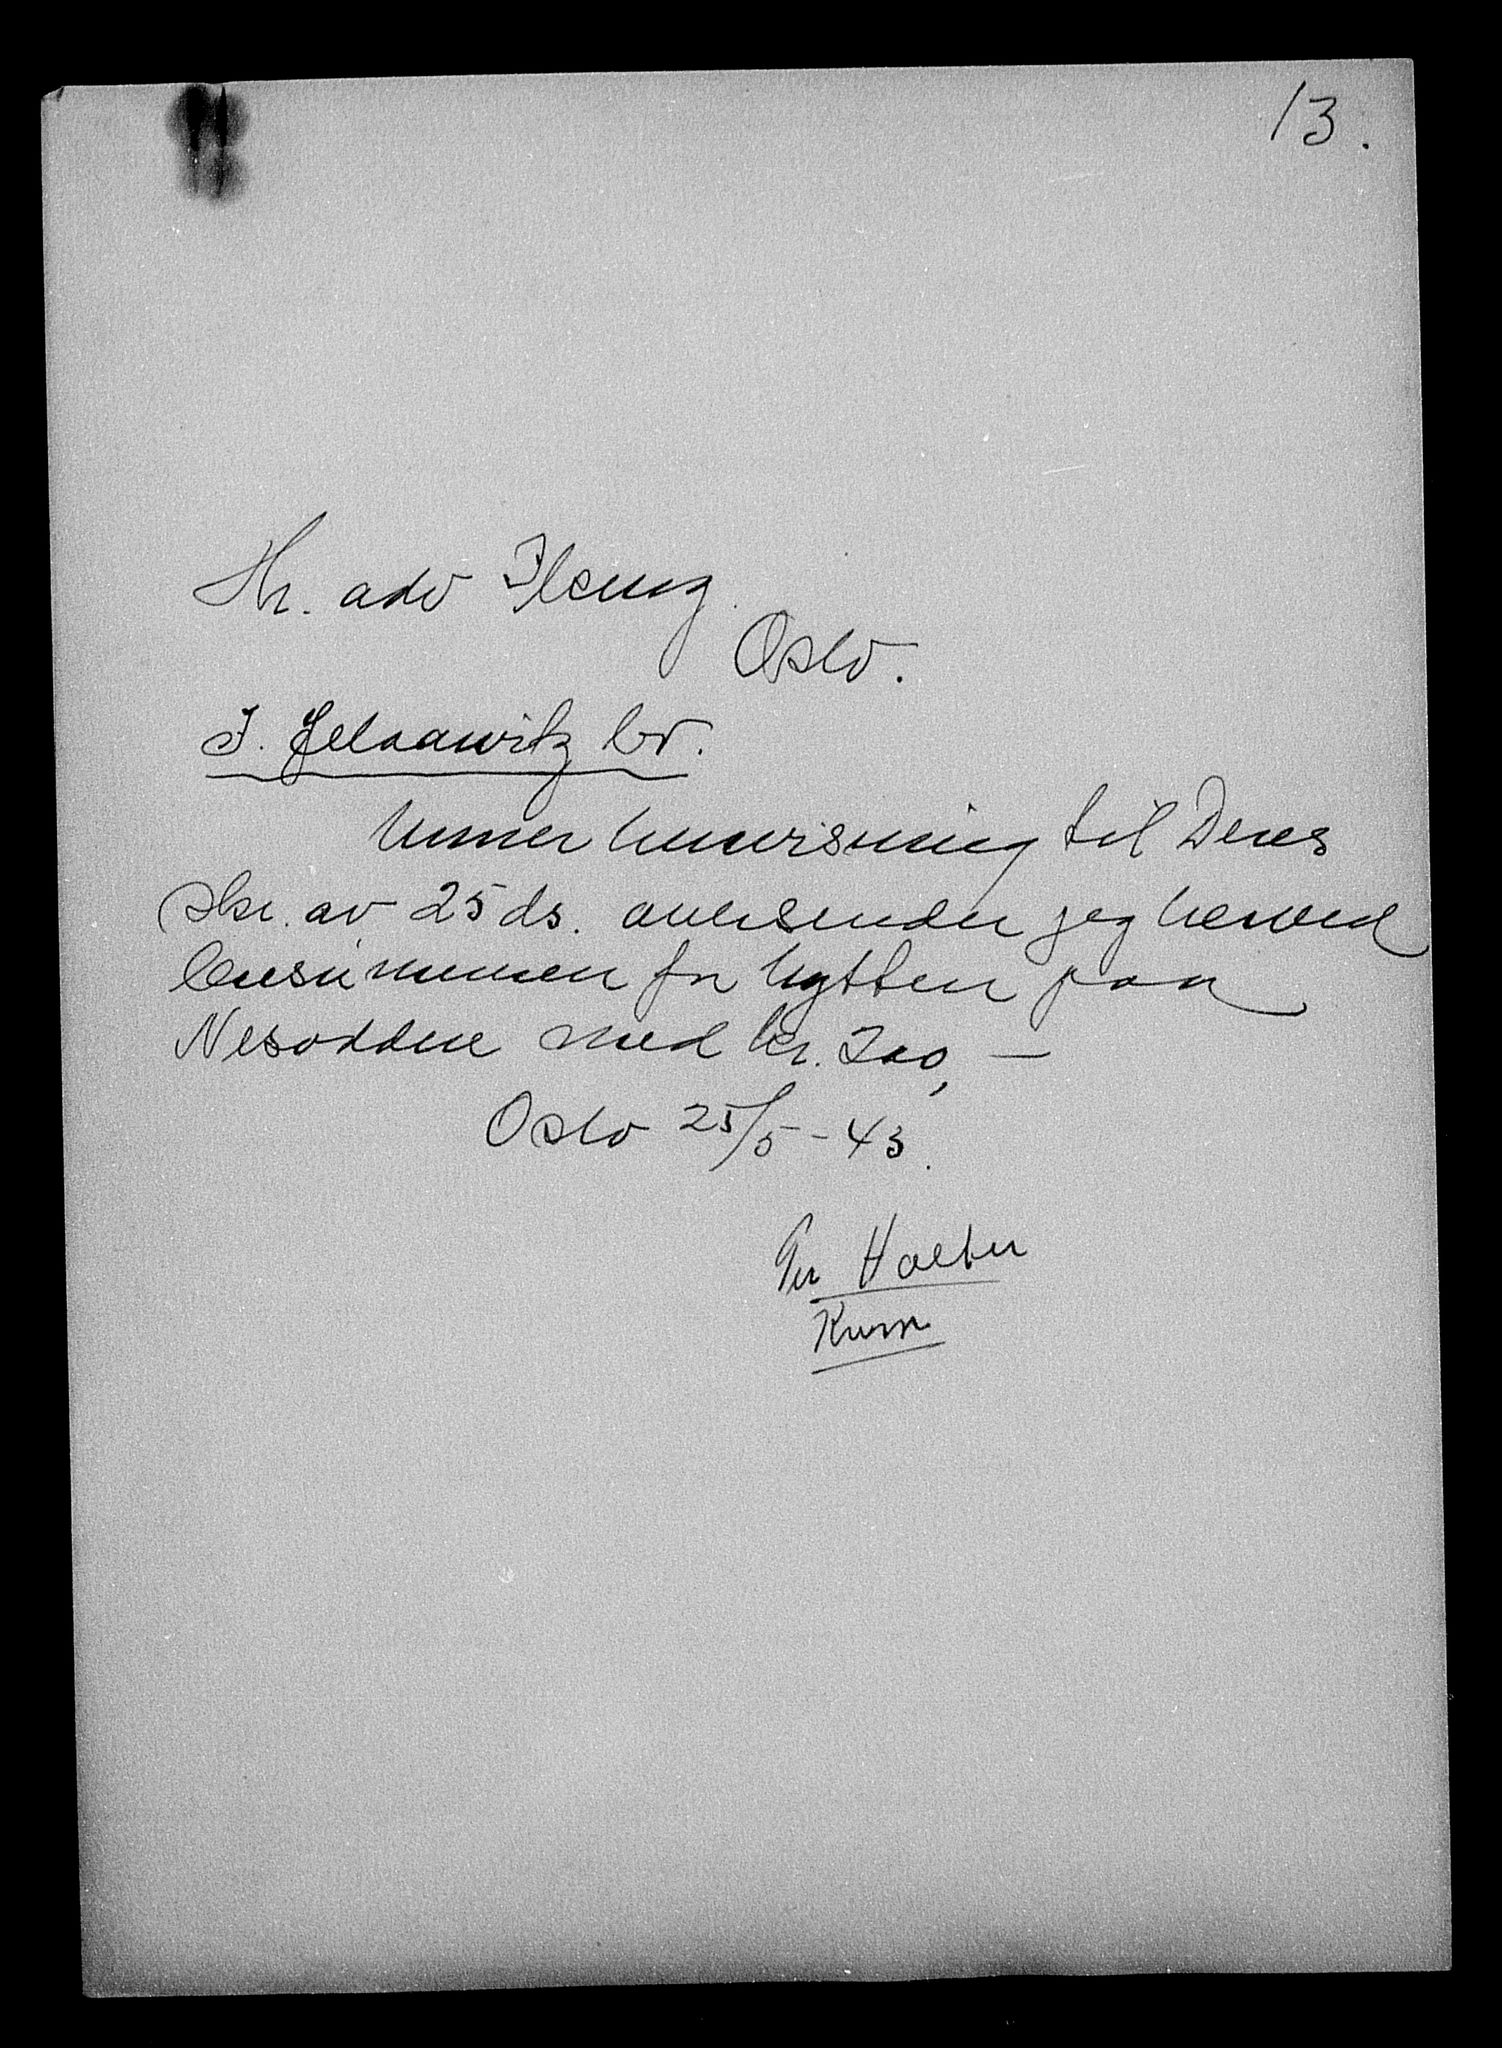 13.
Hr. adv Ilseng
Oslo.
J. Jelaawitz bo.
Under henvisning til Deres
skr. av 25 ds. oversender jeg herved
leiesummen for hytten paa
Nesodden med kr. 200,—
Oslo 25/5-43.
Per Holter